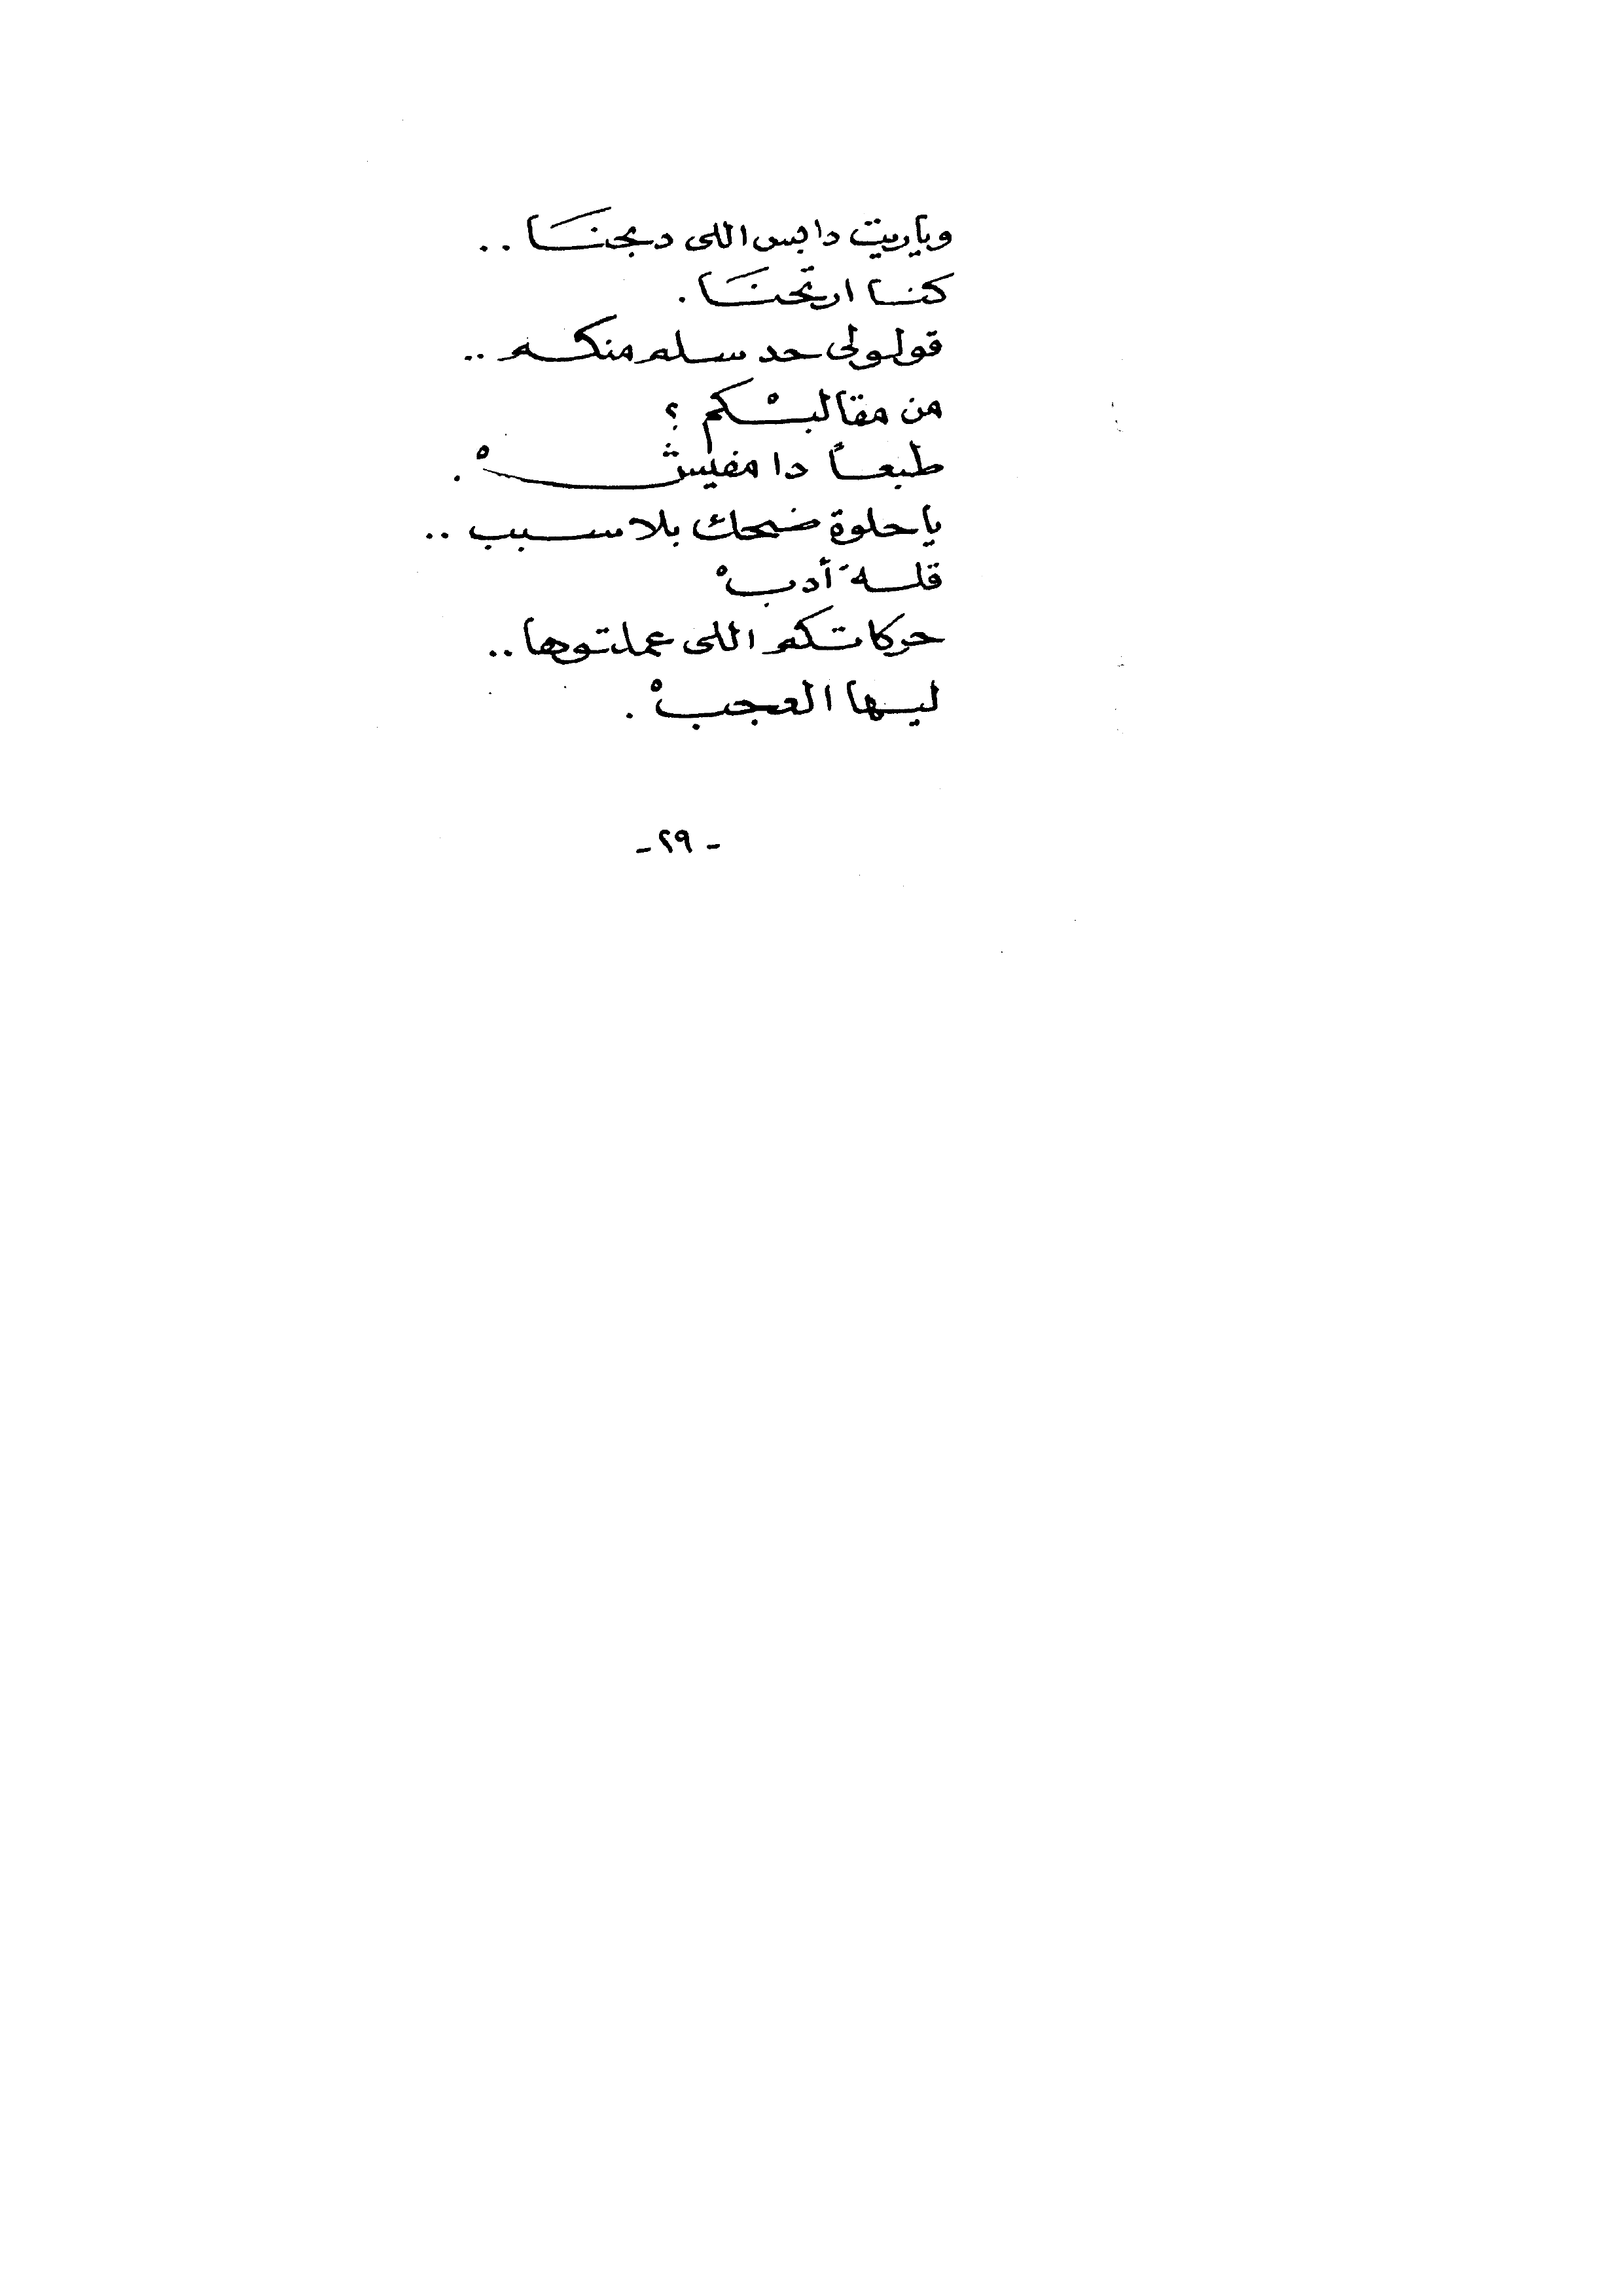 وياريت دا بس اللى دبحنَا ..
كنا ارتحنَا .
قولولى حد سلم منكم ..
من مقالبْكم ؟
طبعاً دا مفيشْ .
ياحلوة ضحك بلا سبب ..
قلة َ أدبْ
حركاتكم اللى عملتوها ..
ليها العجبْ .
- ٢٩ -